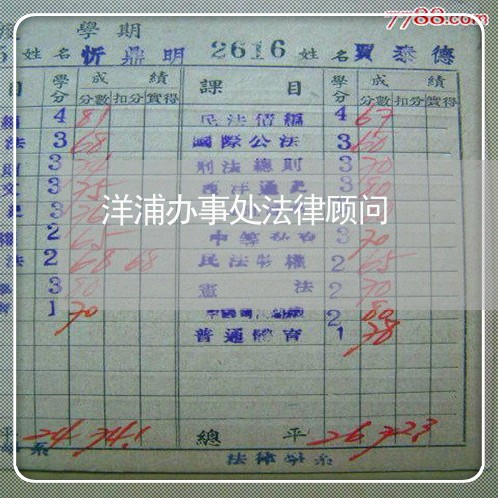 7788.com
學期
姓名 忻鼎明 2616 姓名 賈泰德
目 學分 成績 課目 學分 成績
分數 扣分 實得 分數 扣分 實得
4 81 民法債編 4 67
法 3 68 國際公法 3 60
3 刑法總則 3 70
3 75 西洋通史 3 80
洋浦办事处法律顾问
2 65 3 70
法 2 68 68 民法物權 2 65
3 80 憲法 2 70
1 70 2 80
普通體育 1 78
平 24 74.1 總平 26 72.3
系 法律學系